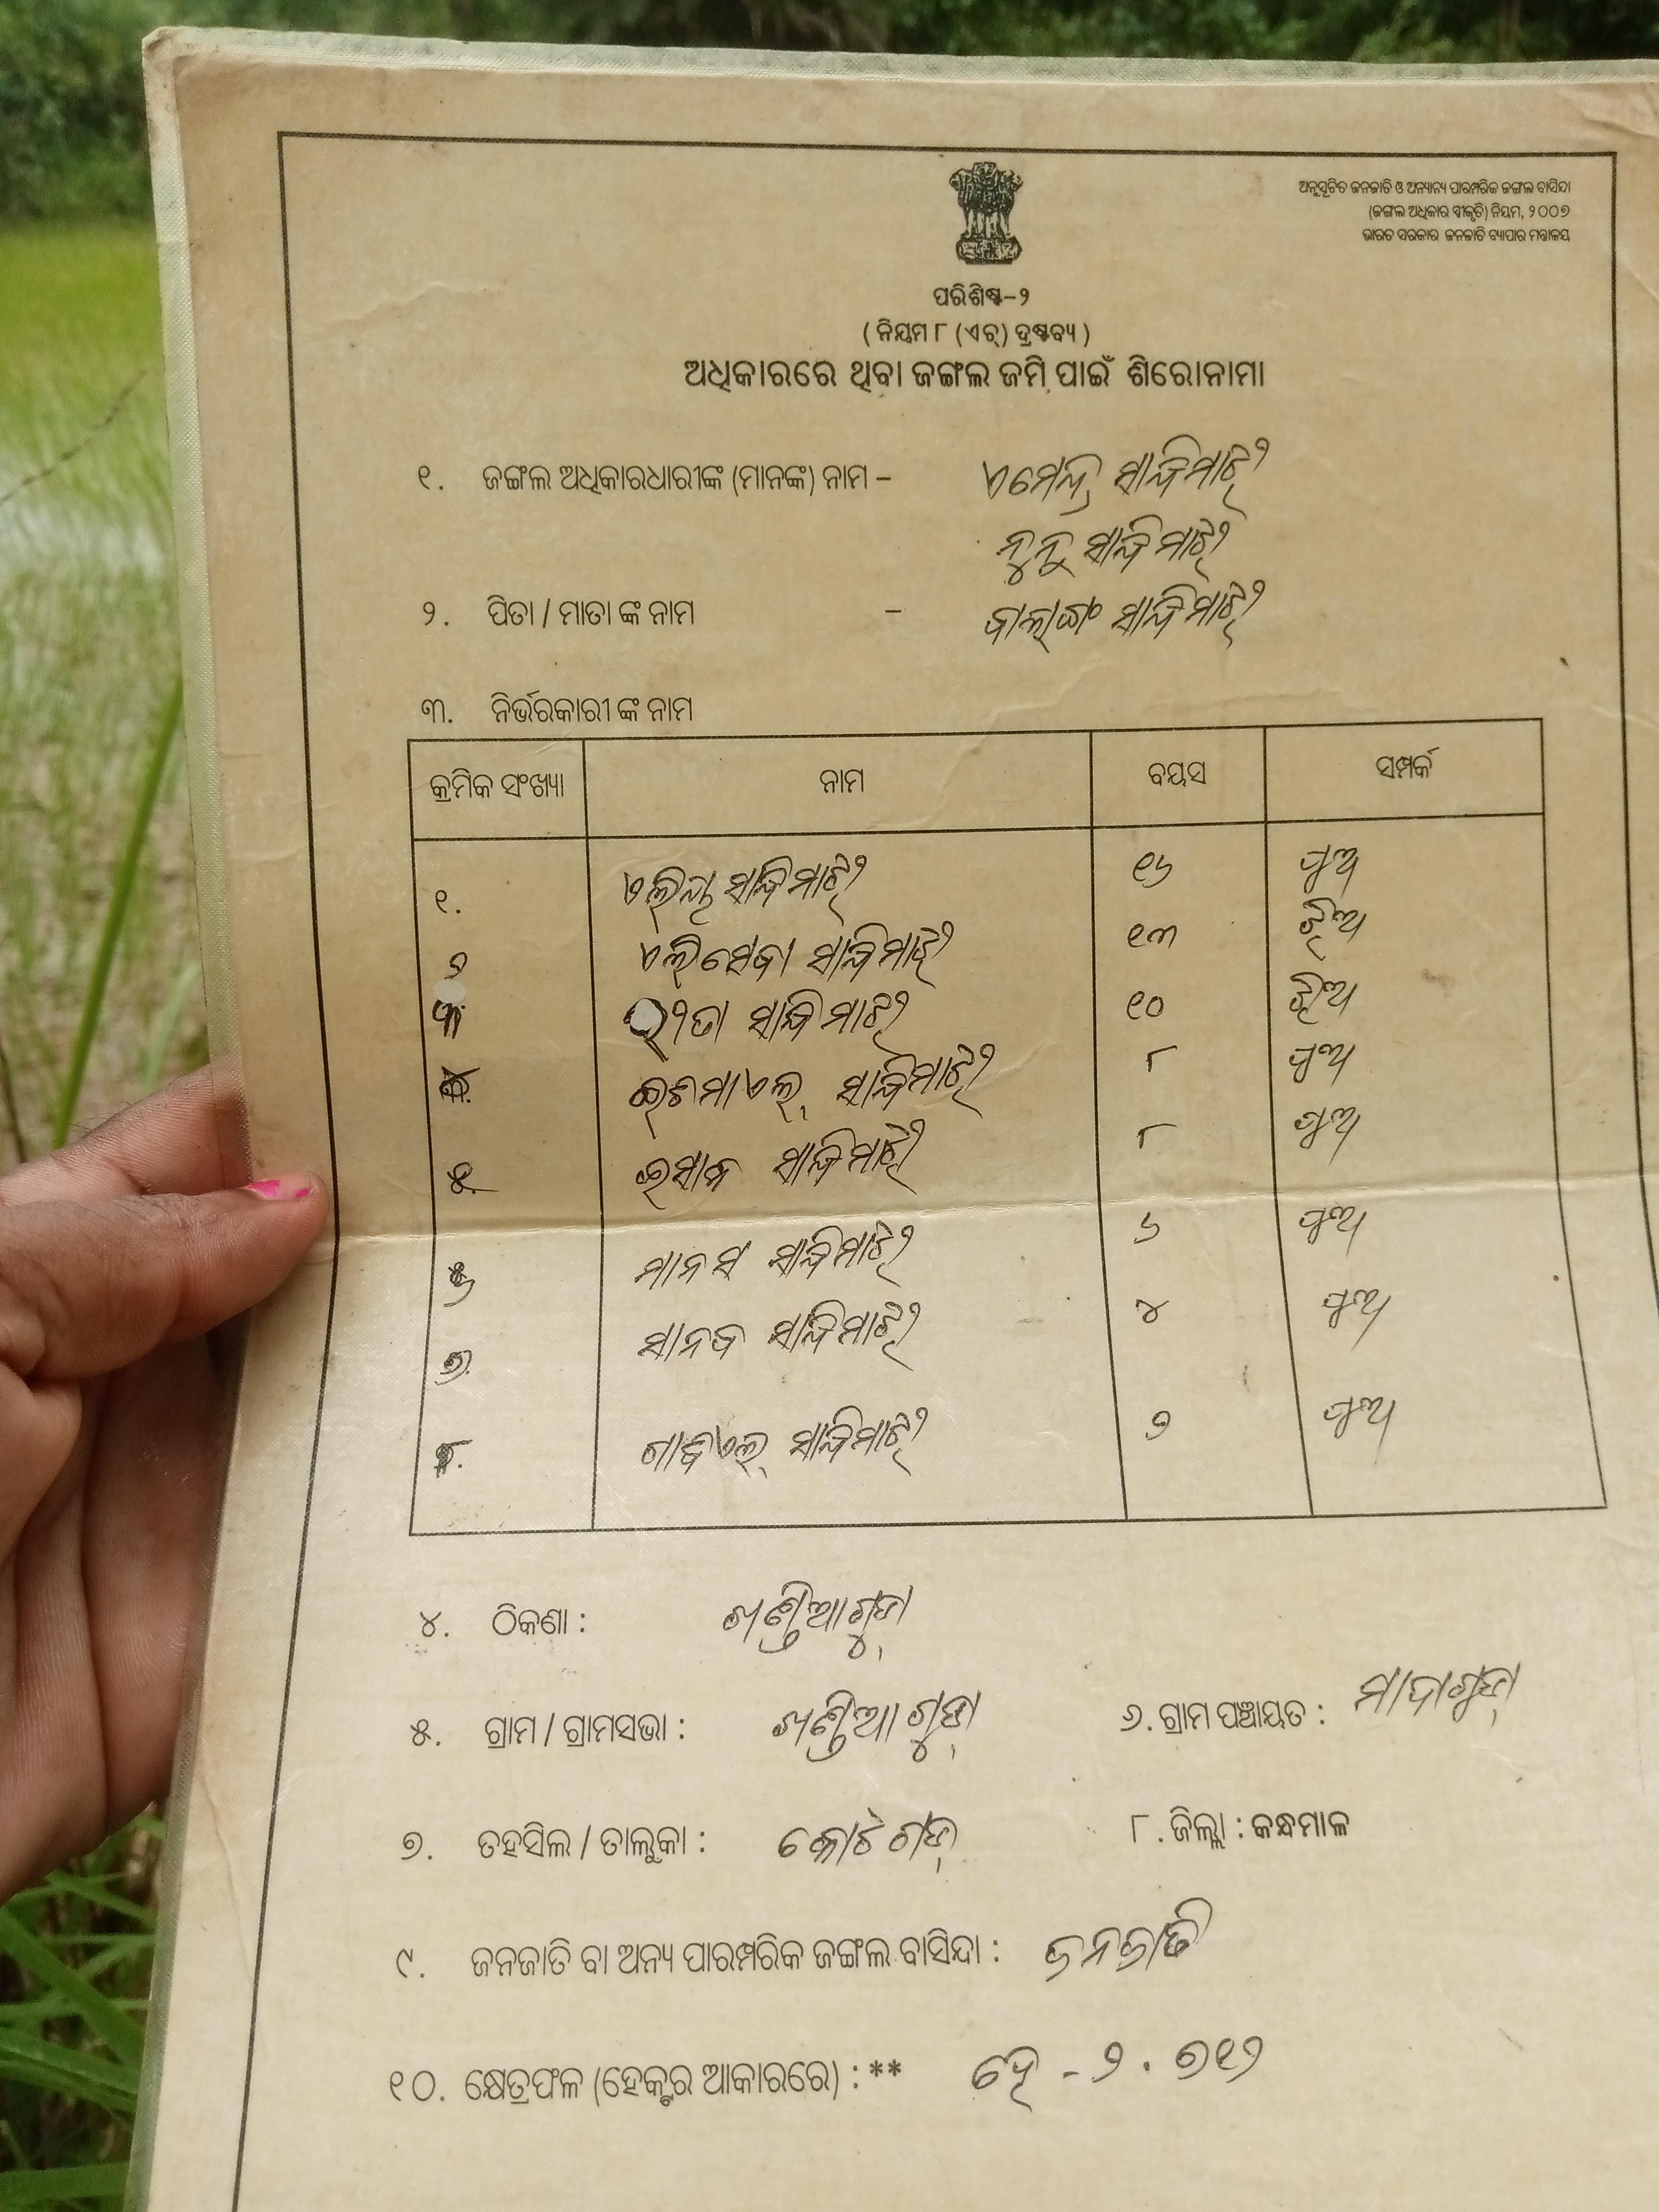 ଅନୁସୂଚିତ ଜନଜାତି ଓ ଅନ୍ୟାନ୍ୟ ପାରମ୍ପରିକ ଜଙ୍ଗଲ ବାସିନ୍ଦା
(ଜଙ୍ଗଲ ଅଧିକାର ସ୍ୱୀକୃତି) ନିୟମ, ୨୦୦୭
ଭାରତ ସରକାର ଜନଜାତି ବ୍ୟାପାର ମନ୍ତ୍ରାଳୟ
ପରିଶିଷ୍ଟ-୨
( ନିୟମ ୮ (ଏଚ୍) ଦ୍ରଷ୍ଟବ୍ୟ )
ଅଧିକାରରେ ଥିବା ଜଙ୍ଗଲ ଜମି ପାଇଁ ଶିରୋନାମା
୧. ଜଙ୍ଗଲ ଅଧିକାରଧାରୀଙ୍କ (ମାନଙ୍କ) ନାମ – ଏମେନ୍ଦ୍ର ସାନ୍ଦିମାଝୀ
ନୁନୁ ସାନ୍ଦିମାଝୀ
୨. ପିତା / ମାତା ଙ୍କ ନାମ – ସାନ୍ଦିମାଝୀ
୩. ନିର୍ଭରକାରୀ ଙ୍କ ନାମ
କ୍ରମିକ ସଂଖ୍ୟା ନାମ ବୟସ ସମ୍ପର୍କ
୧. ସାନ୍ଦିମାଝୀ ୧୬ ପୁଅ
୨ ଏଲିସେବା ସାନ୍ଦିମାଝୀ ୧୩ ଝିଅ
୩. ସାନ୍ଦିମାଝୀ ୧୦ ଝିଅ
୪. ଇଶମାଏଲ୍ ସାନ୍ଦିମାଝୀ ୮ ପୁଅ
୫. ଇସାକ ସାନ୍ଦିମାଝୀ ୮ ପୁଅ
୬ ମାନସ ସାନ୍ଦିମାଝୀ ୬ ପୁଅ
୭. ସାନ୍ଦିମାଝୀ ୪ ପୁଅ
୮. ଗାବ୍ରିଏଲ୍ ସାନ୍ଦିମାଝୀ ୨ ପୁଅ
୪. ଠିକଣା : ଖଣ୍ଡିଆଗୁଡା
୫. ଗ୍ରାମ / ଗ୍ରାମସଭା : ଖଣ୍ଡିଆଗୁଡା ୬. ଗ୍ରାମ ପଞ୍ଚାୟତ :
୭. ତହସିଲ / ତାଲୁକା : କୋଟଗଡ଼ ୮. ଜିଲ୍ଲା : କନ୍ଧମାଳ
୯. ଜନଜାତି ବା ଅନ୍ୟ ପାରମ୍ପରିକ ଜଙ୍ଗଲ ବାସିନ୍ଦା : ଜନଜାତି
୧୦. କ୍ଷେତ୍ରଫଳ (ହେକ୍ଟର ଆକାରରେ) : ** ହେ - ୨.୭୧୨